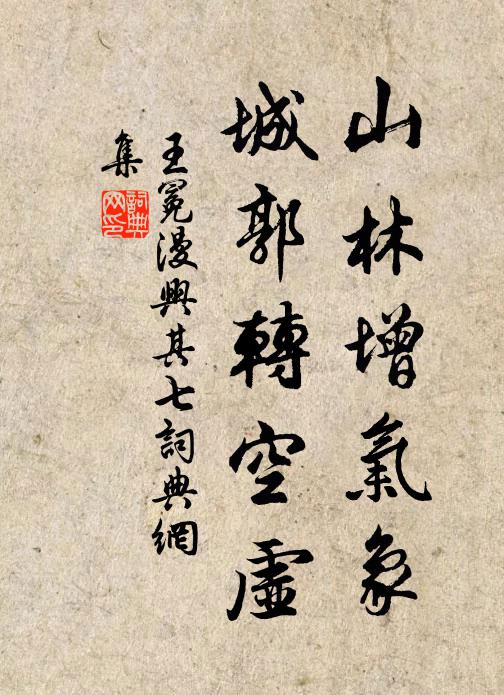 山林增氣象
城郭轉空虛
王冕漫興其七詞典網
集
詞典網印